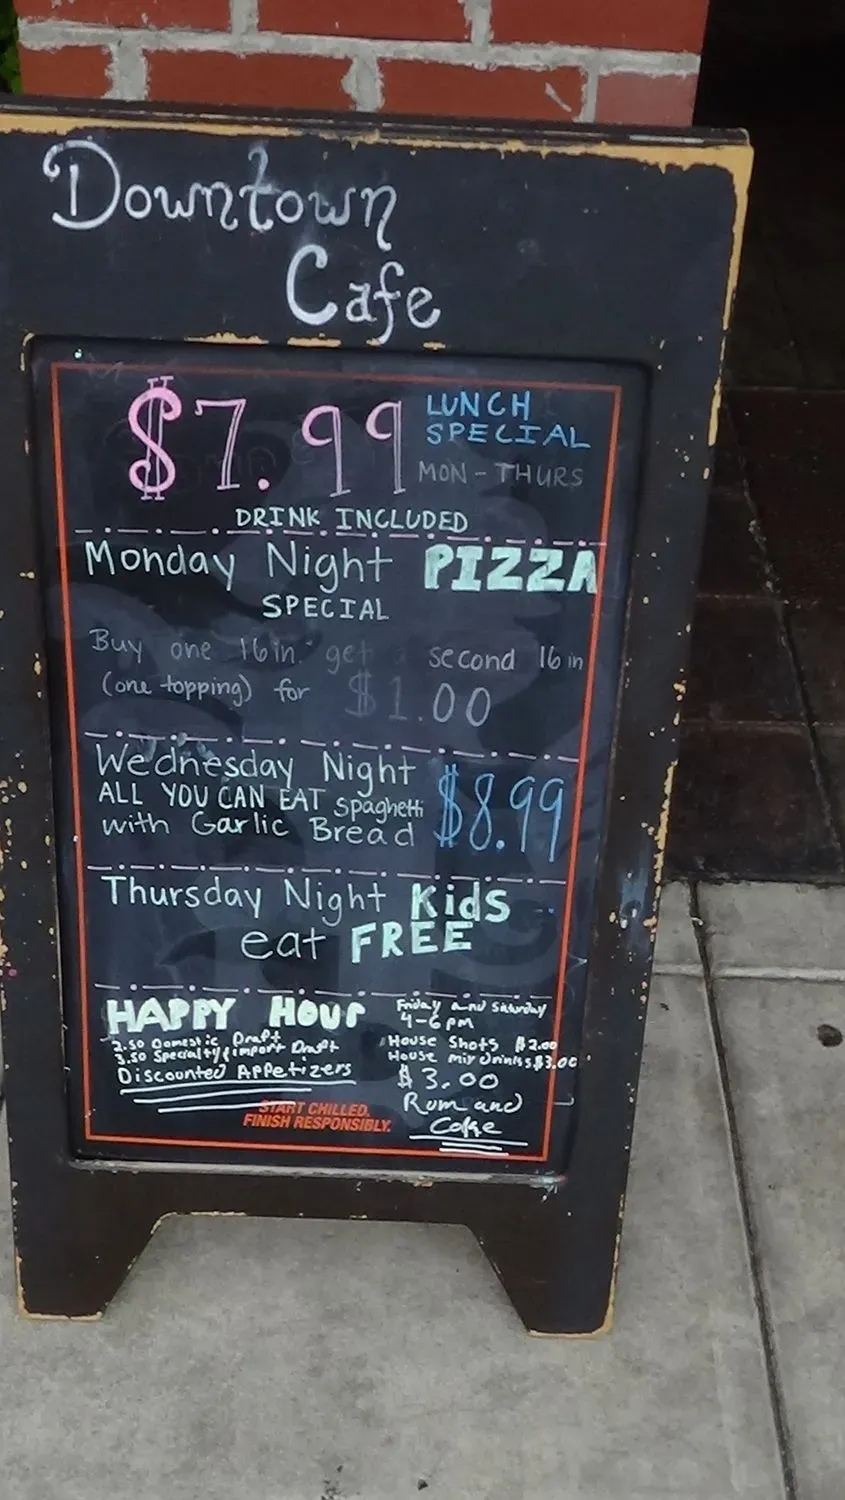 Downtown
Cafe
$7.99 LUNCH
SPECIAL
MON-THURS
DRINK INCLUDED
Monday Night PIZZA
SPECIAL
Buy one 16in. get a second 16in
(one topping) for $1.00
Wednesday Night
ALL YOU CAN EAT Spaghetti
with Garlic Bread $8.99
Thursday Night Kids
eat FREE
HAPPY HOUR
2.50 Domestic Draft
3.50 Specialty/import Draft
Discounted Appetizers
Friday and Saturday
4-6pm
House Shots $2.00
House mix Drinks $3.00
$3.00
Rum and
Coke
START CHILLED.
FINISH RESPONSIBLY.